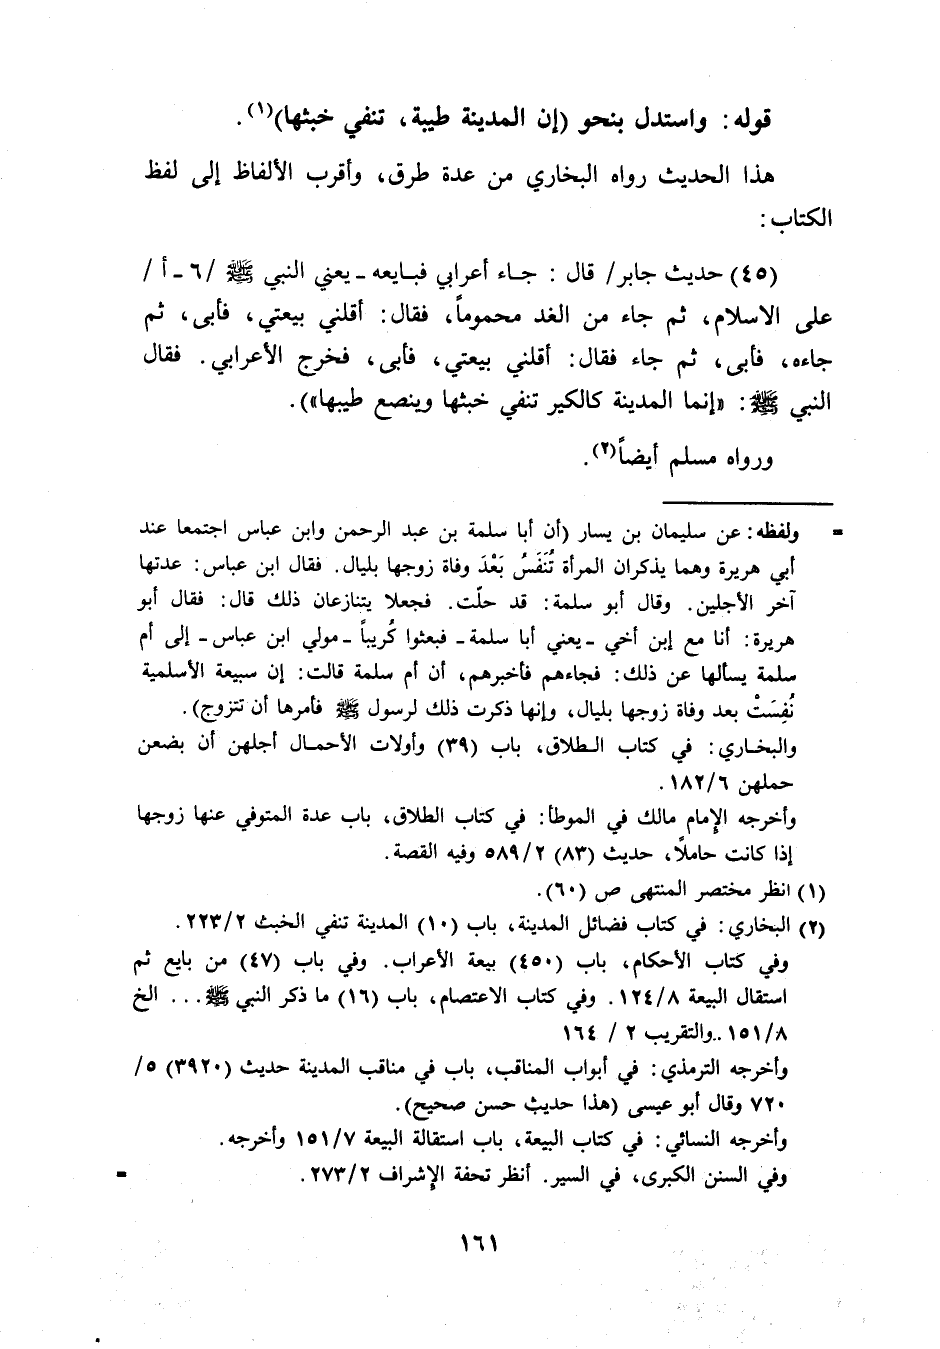 قوله: واستدل بنحو (إن المدينة طيبة، تنفي خبثها)(١).
هذا الحديث رواه البخاري من عدة طرق، وأقرب الألفاظ إلى لفظ
الكتاب:
(٤٥) حديث جابر/ قال : جاء أعرابي فبايعه - يعني النبي ﷺ /٦ - أ /
على الاسلام، ثم جاء من الغد محموماً، فقال: أقلني بيعتي، فأبى، ثم
جاءه، فأبى، ثم جاء فقال: أقلني بيعتي، فأبى، فخرج الأعرابي. فقال
النبي ﷺ: «إنما المدينة كالكير تنفي خبثها وينصع طيبها»).
ورواه مسلم أيضاً(٢).
= ولفظه: عن سليمان بن يسار (أن أبا سلمة بن عبد الرحمن وابن عباس اجتمعا عند
أبي هريرة وهما يذكران المرأة تُنَفَسُ بَعْدَ وفاة زوجها بليال. فقال ابن عباس: عدتها
آخر الأجلين. وقال أبو سلمة: قد حلّت. فجعلا يتنازعان ذلك قال: فقال أبو
هريرة: أنا مع إبن أخي - يعني أبا سلمة - فبعثوا كُريباً - مولي ابن عباس - إلى أم
سلمة يسألها عن ذلك: فجاءهم فأخبرهم، أن أم سلمة قالت: إن سبيعة الأسلمية
نُفِسَتْ بعد وفاة زوجها بليال، وإنها ذكرت ذلك لرسول ﷺ فأمرها أن تتزوج).
والبخاري: في كتاب الطلاق، باب (٣٩) وأولات الأحمال أجلهن أن بضعن
حملهن ١٨٢/٦.
وأخرجه الإمام مالك في الموطأ: في كتاب الطلاق، باب عدة المتوفي عنها زوجها
إذا كانت حاملًا، حديث (٨٣) ٥٨٩/٢ وفيه القصة.
(١) انظر مختصر المنتهى ص (٦٠).
(٢) البخاري: في كتاب فضائل المدينة، باب (١٠) المدينة تنفي الخبث ٢٢٣/٢.
وفي كتاب الأحكام، باب (٤٥٠) بيعة الأعراب. وفي باب (٤٧) من بايع ثم
استقال البيعة ١٢٤/٨. وفي كتاب الاعتصام، باب (١٦) ما ذكر النبي ﷺ... الخ
١٥١/٨..والتقريب ٢ / ١٦٤
وأخرجه الترمذي: في أبواب المناقب، باب في مناقب المدينة حديث (٣٩٢٠) ٥/
٧٢٠ وقال أبو عيسى (هذا حديث حسن صحيح).
وأخرجه النسائي: في كتاب البيعة، باب استقالة البيعة ١٥١/٧ وأخرجه.
وفي السنن الكبرى، في السير. أنظر تحفة الإشراف ٢٧٣/٢. =
١٦١